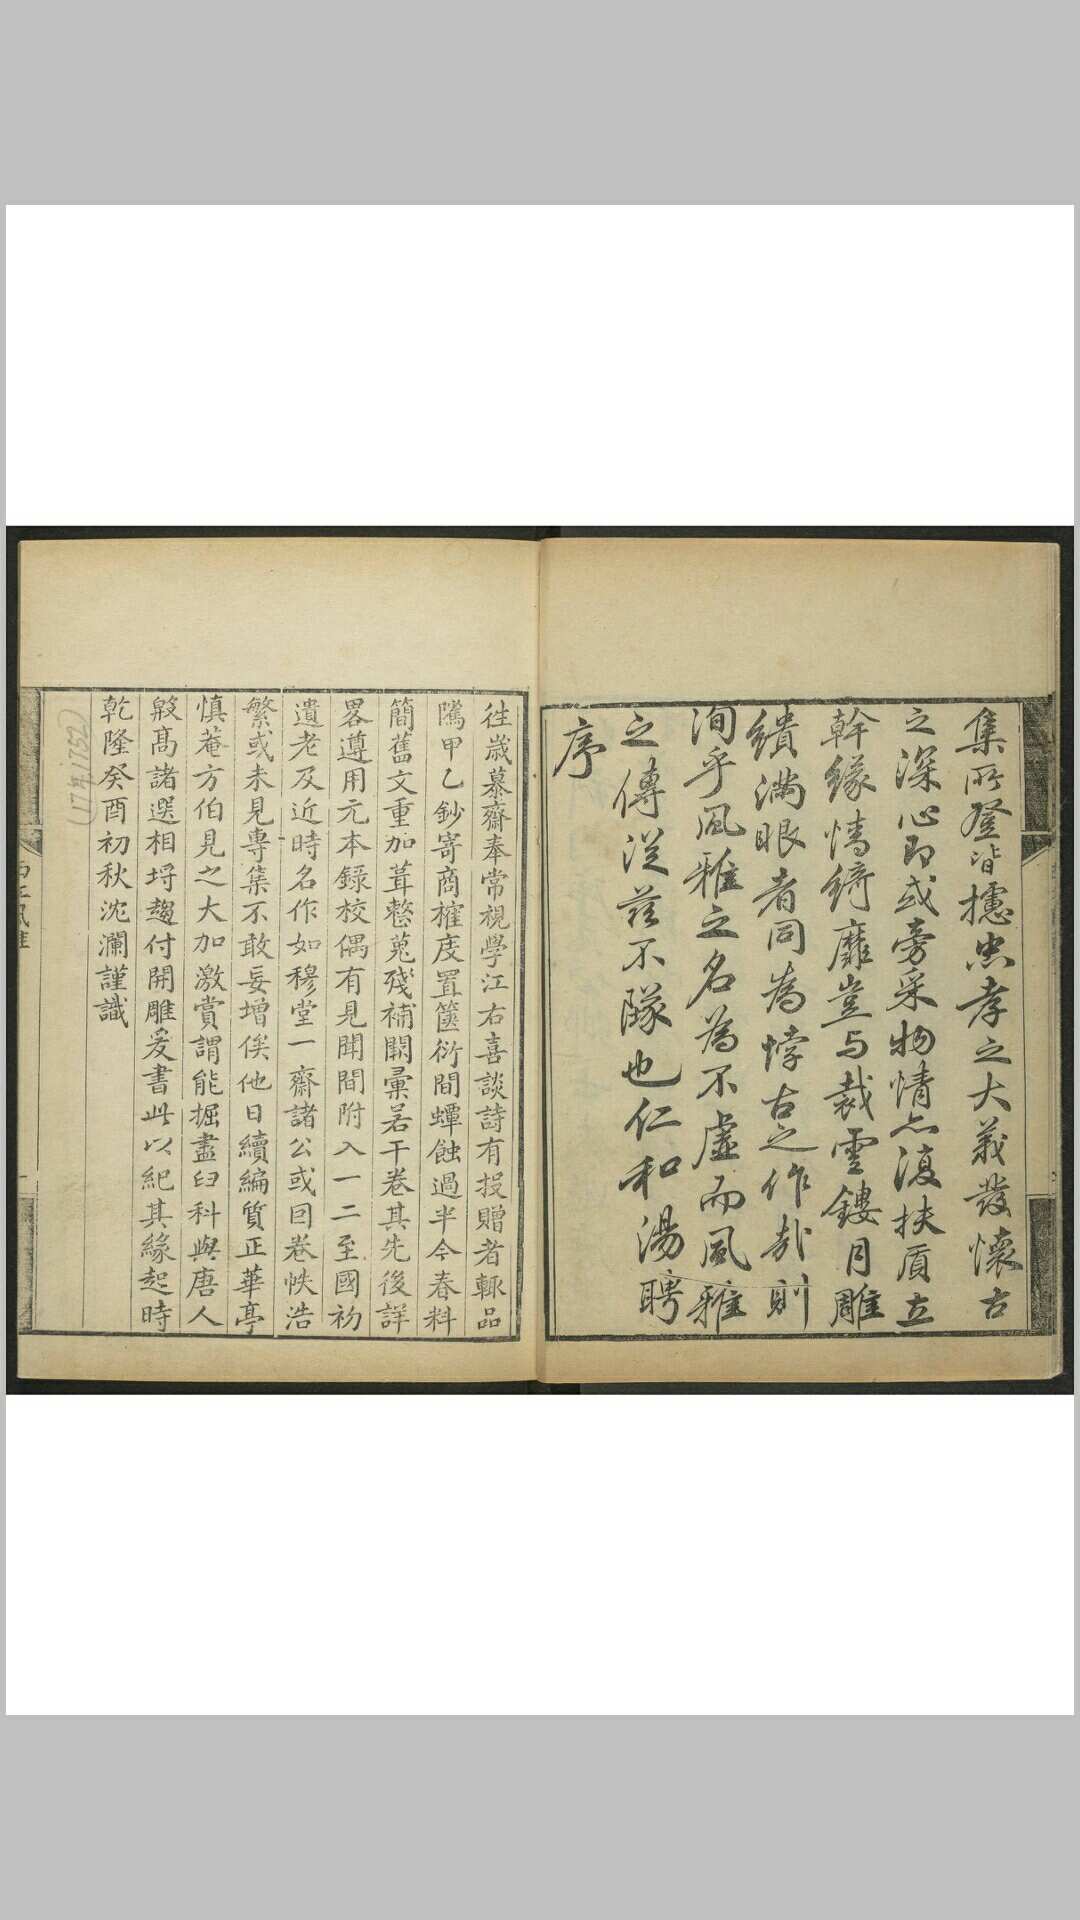 集所登皆攄忠孝之大義發懷古
之深心即或旁采物情亦復扶質立
幹緣情綺靡豈与裁雲鏤月雕
繢滿眼者同為悖古之作哉則
洵乎風雅之名為不虛而風雅
之傳從茲不墜也仁和湯聘
序
往歲慕齋奉常視學江右喜談詩有投贈者輒品
隲甲乙鈔寄商榷庋置篋衍間蟫蝕過半今春料
簡舊文重加葺整蒐殘補闕彙若干卷其先後詳
畧遵用元本錄校偶有見聞間附入一二至國初
遺老及近時名作如穆堂一齋諸公或因卷帙浩
繁或未見專集不敢妄增俟他日續編質正華亭
慎菴方伯見之大加激賞謂能掘盡臼科與唐人
殷髙諸選相埒趣付開雕爰書此以紀其緣起時
乾隆癸酉初秋沈瀾謹識
西江風雅